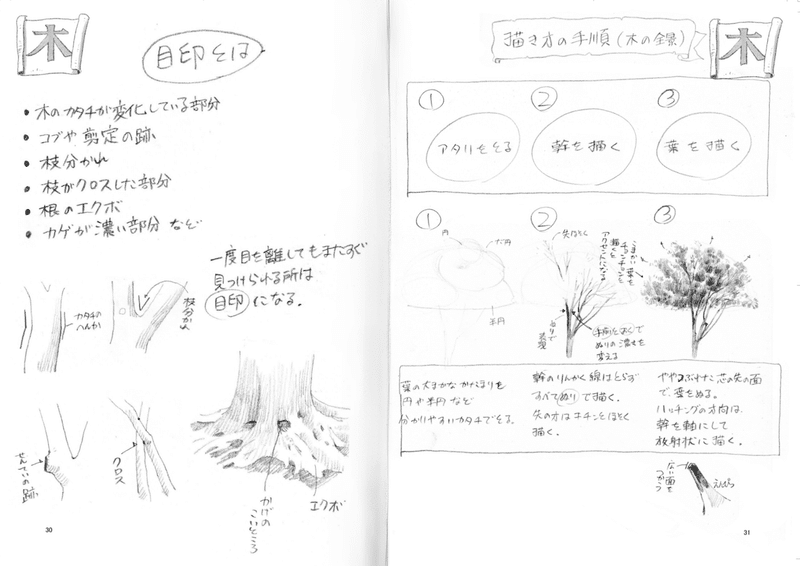 木
目印とは
• 木のカタチが変化している部分
• コブや剪定の跡
• 枝分かれ
• 枝がクロスした部分
• 根のエクボ
• カゲが濃い部分 など
一度目を離してもまたすぐ
見つけられる所は
目印になる.
カタチの
へんか
枝分かれ
せんていの跡
クロス
かげの
こいところ
エクボ
30
描き方の手順(木の全景)
木
①
②
③
アタリをとる
幹を描く
葉を描く
①
②
③
円
だ円
半円
先ほそく
ぬりで
表現
こまかい葉を
チョンチョンと
描くと
アクセントになる
ぬりの濃さを
変える
葉の大まかなかたまりを
円や半円など
分かりやすいカタチでとる.
幹のりんかく線はとらず
すべてぬりで描く.
先の方はキチンとほそく
描く.
ややつぶれた芯の先の面
で,葉をぬる.
ハッチングの方向は,
幹を軸にして
放射状に描く.
えんぴつ
31